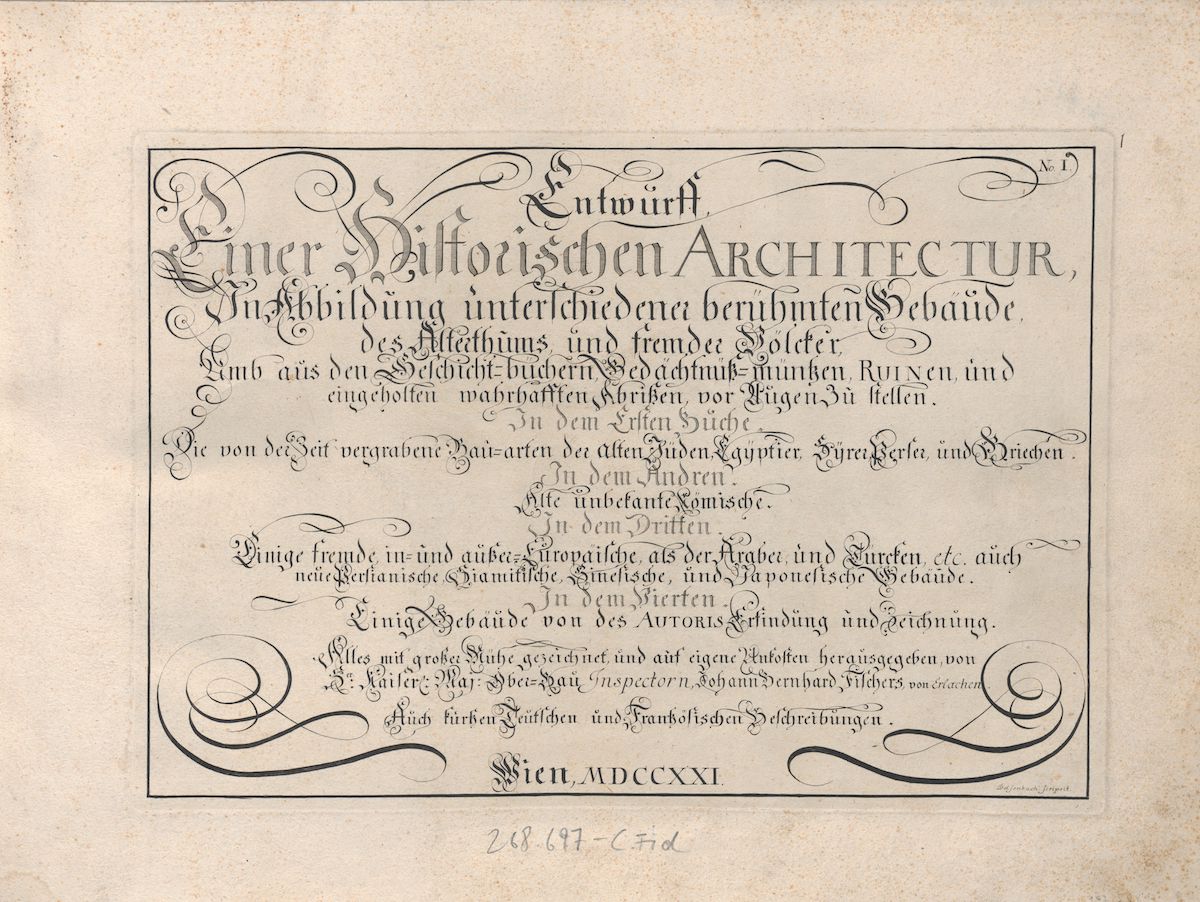 No. I.
1
Entwurff,
Einer Historischen ARCHITECTUR,
In Abbildung unterschiedener berühmten Gebäude,
des Alterthums, und fremder Völcker,
Umb aus den Geschicht=büchern, Gedächtnüß=müntzen, RUINEN, und
eingeholten wahrhafften Abrißen, vor Augen zu stellen.
In dem Ersten Buche.
Die von der Zeit vergrabene Bau=arten der alten Jüden, Egÿptier, Sÿrer, Perser, und Griechen.
In dem Andren.
Alte unbekante Römische.
In dem Dritten.
Einige fremde, in= und außer=Europäische, als der Araber, und Türcken, etc. auch
neue Persianische, Siamitische, Sinesische, und Japonesische Gebäude.
In dem Vierten.
Einige Gebäude von des AUTORIS Erfindung und Zeichnung.
Alles mit großer Mühe gezeichnet, und auf eigene Unkosten herausgegeben, von
Sr. Kaiserl: Maj: Ober=Bau Inspectorn, Johann Bernhard Fischers, von Erlachen
Auch kurtzen Teutschen und Frantzösischen Beschreibungen.
Wien, MDCCXXI.
scripsit.
268.697-C.Fid